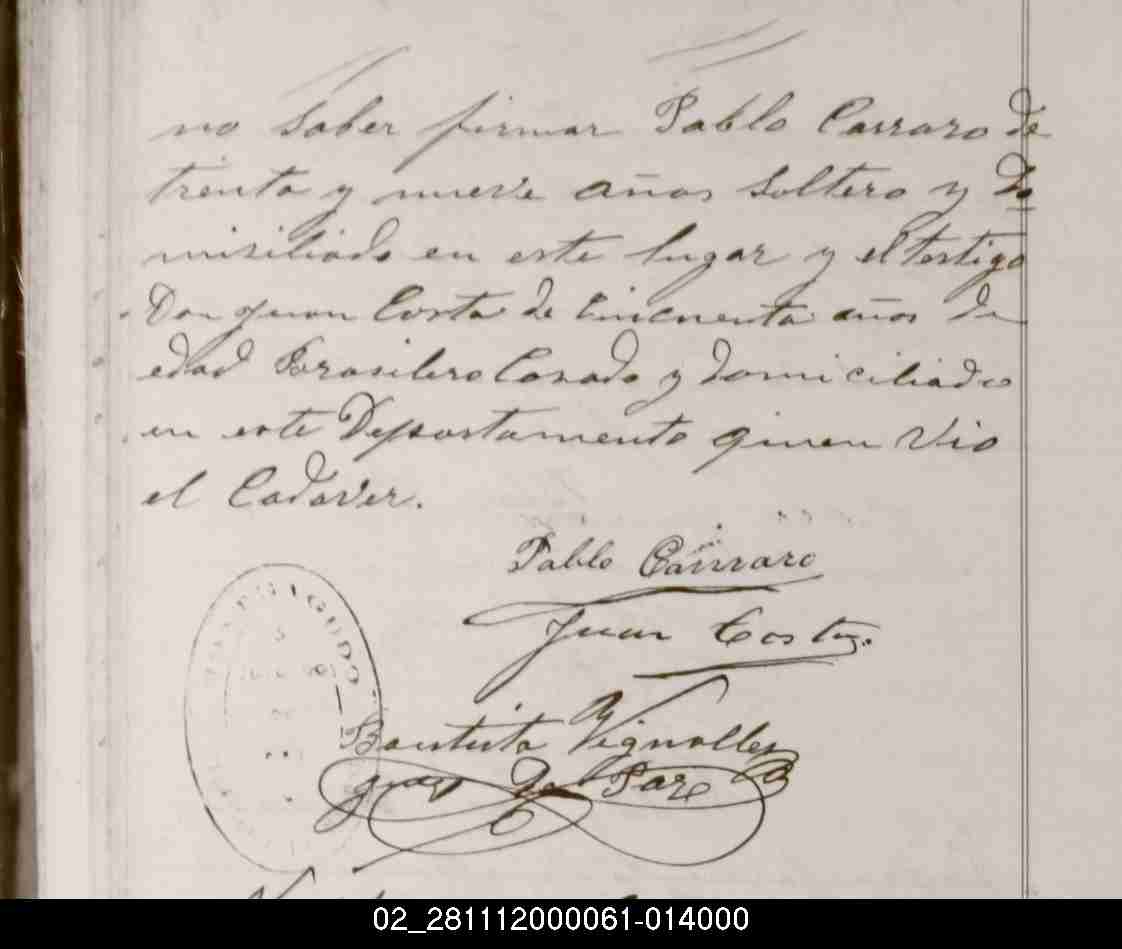 no saber firmar Pablo Carraro de
trenta y nueve años soltero y do
misiliado en este lugar y el testigo
Don Juan Costa de Cincuenta años de
edad Brasilero Casado y domiciliado
en este Departamento quien vio
el Cadaver.
Pablo Carraro
Juan Costa.
Bautista Vignolles
Juez de Paz
02_281112000061-014000